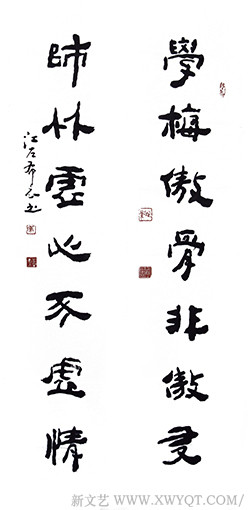 學梅傲骨非傲
師竹虛心不虛情
江左
新文艺 WWW.XWYQT.COM/